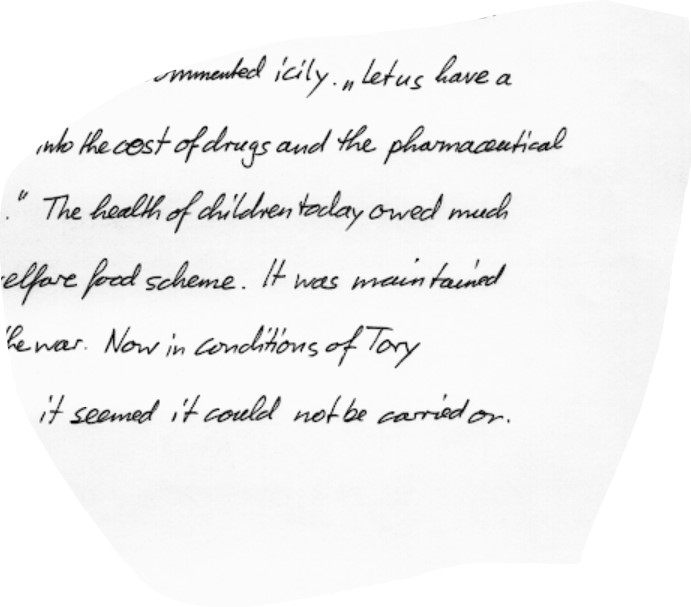 icily. „Let us have a
into the cost of drugs and the pharmaceutical
." The health of children today owed much
food scheme. It was maintained
the war. Now in conditions of Tory
it seemed it could not be carried on.